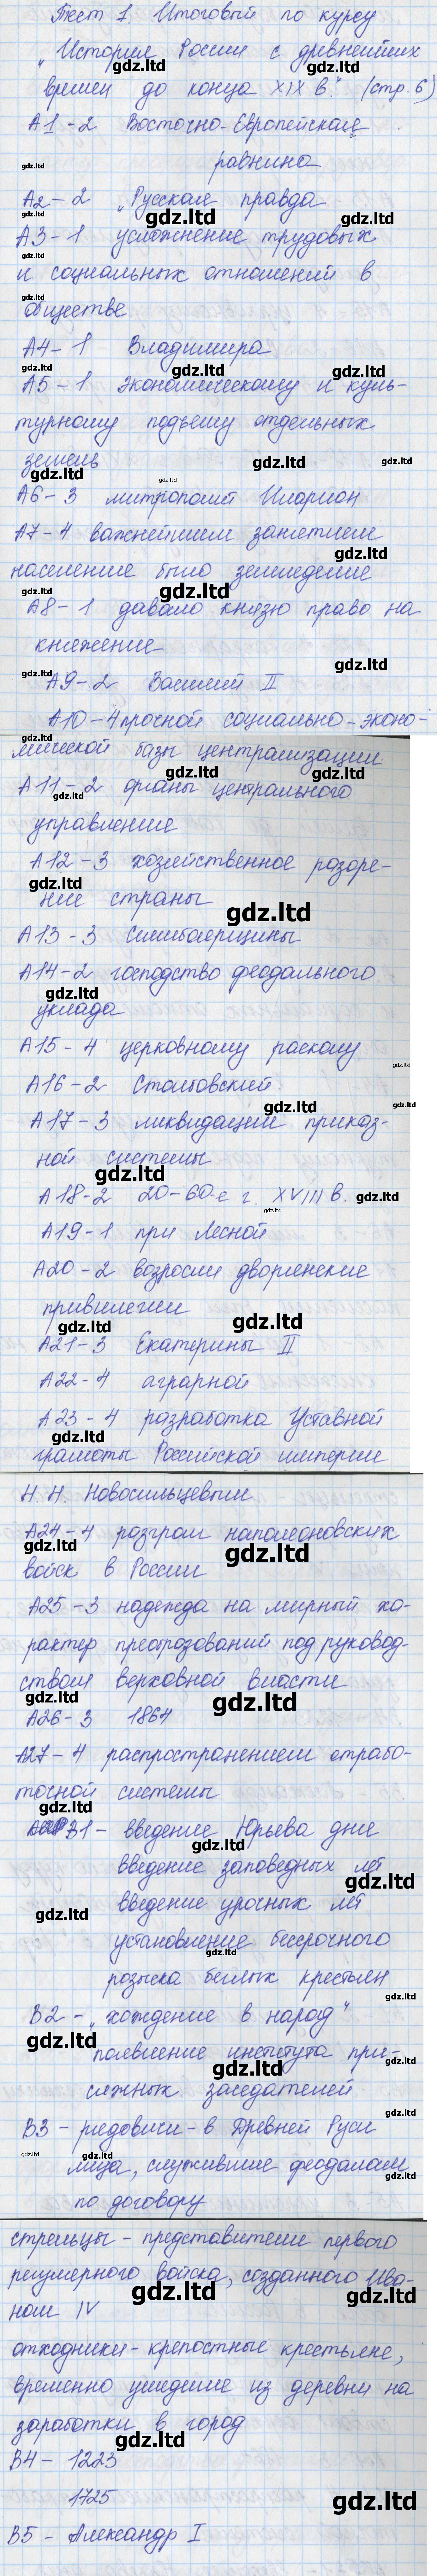 Тест 1. Итоговый по курсу
"История России с древнейших
времен до конца XIX в." (стр. 6)
А1-2 Восточно-Европейская
равнина
А2-2 "Русская правда
А3-1 усложнение трудовых
и социальных отношений в
обществе
А4-1 Владимира
А5-1 экономическому и куль-
турному подъему отдельных
земель
А6-3 митрополит Иларион
А7-4 важнейшим занятием
населения было земледелие
А8-1 давало князю право на
княжение
А9-2 Василий II
А10-4 прочной социально-эконо-
мической базы централизации
А11-2 органы центрального
управления
А12-3 хозяйственное разоре-
ние страны
А13-3 Семибоярщины
А14-2 господство феодального
уклада
А15-4 церковному расколу
А16-2 Столбовский
А17-3 ликвидации приказ-
ной системы
А18-2 20-60-е г. XVIII в.
А19-1 при Лесной
А20-2 возросли дворянские
привилегии
А21-3 Екатерины II
А22-4 аграрной
А23-4 разработка Уставной
грамоты Российской империи
Н.Н. Новосильцевым
А24-4 разгром наполеоновских
войск в России
А25-3 надежда на мирный ха-
рактер преобразований под руковод-
ством верховной власти
А26-3 1864
А27-4 распространением отрабо-
точной системы
В1- введение Юрьева дня
введение заповедных лет
введение урочных лет
установление бессрочного
розыска беглых крестьян
В2- "хождение в народ"
появление института при-
сяжных заседателей
В3- рядовичи-в Древней Руси
лица, служившие феодалам
по договору
стрельцы - представители первого
регулярного войска, созданного Ива-
ном IV
отходники- крепостные крестьяне,
временно ушедшие из деревни на
заработки в город
В4- 1223
1725
В5- Александр I